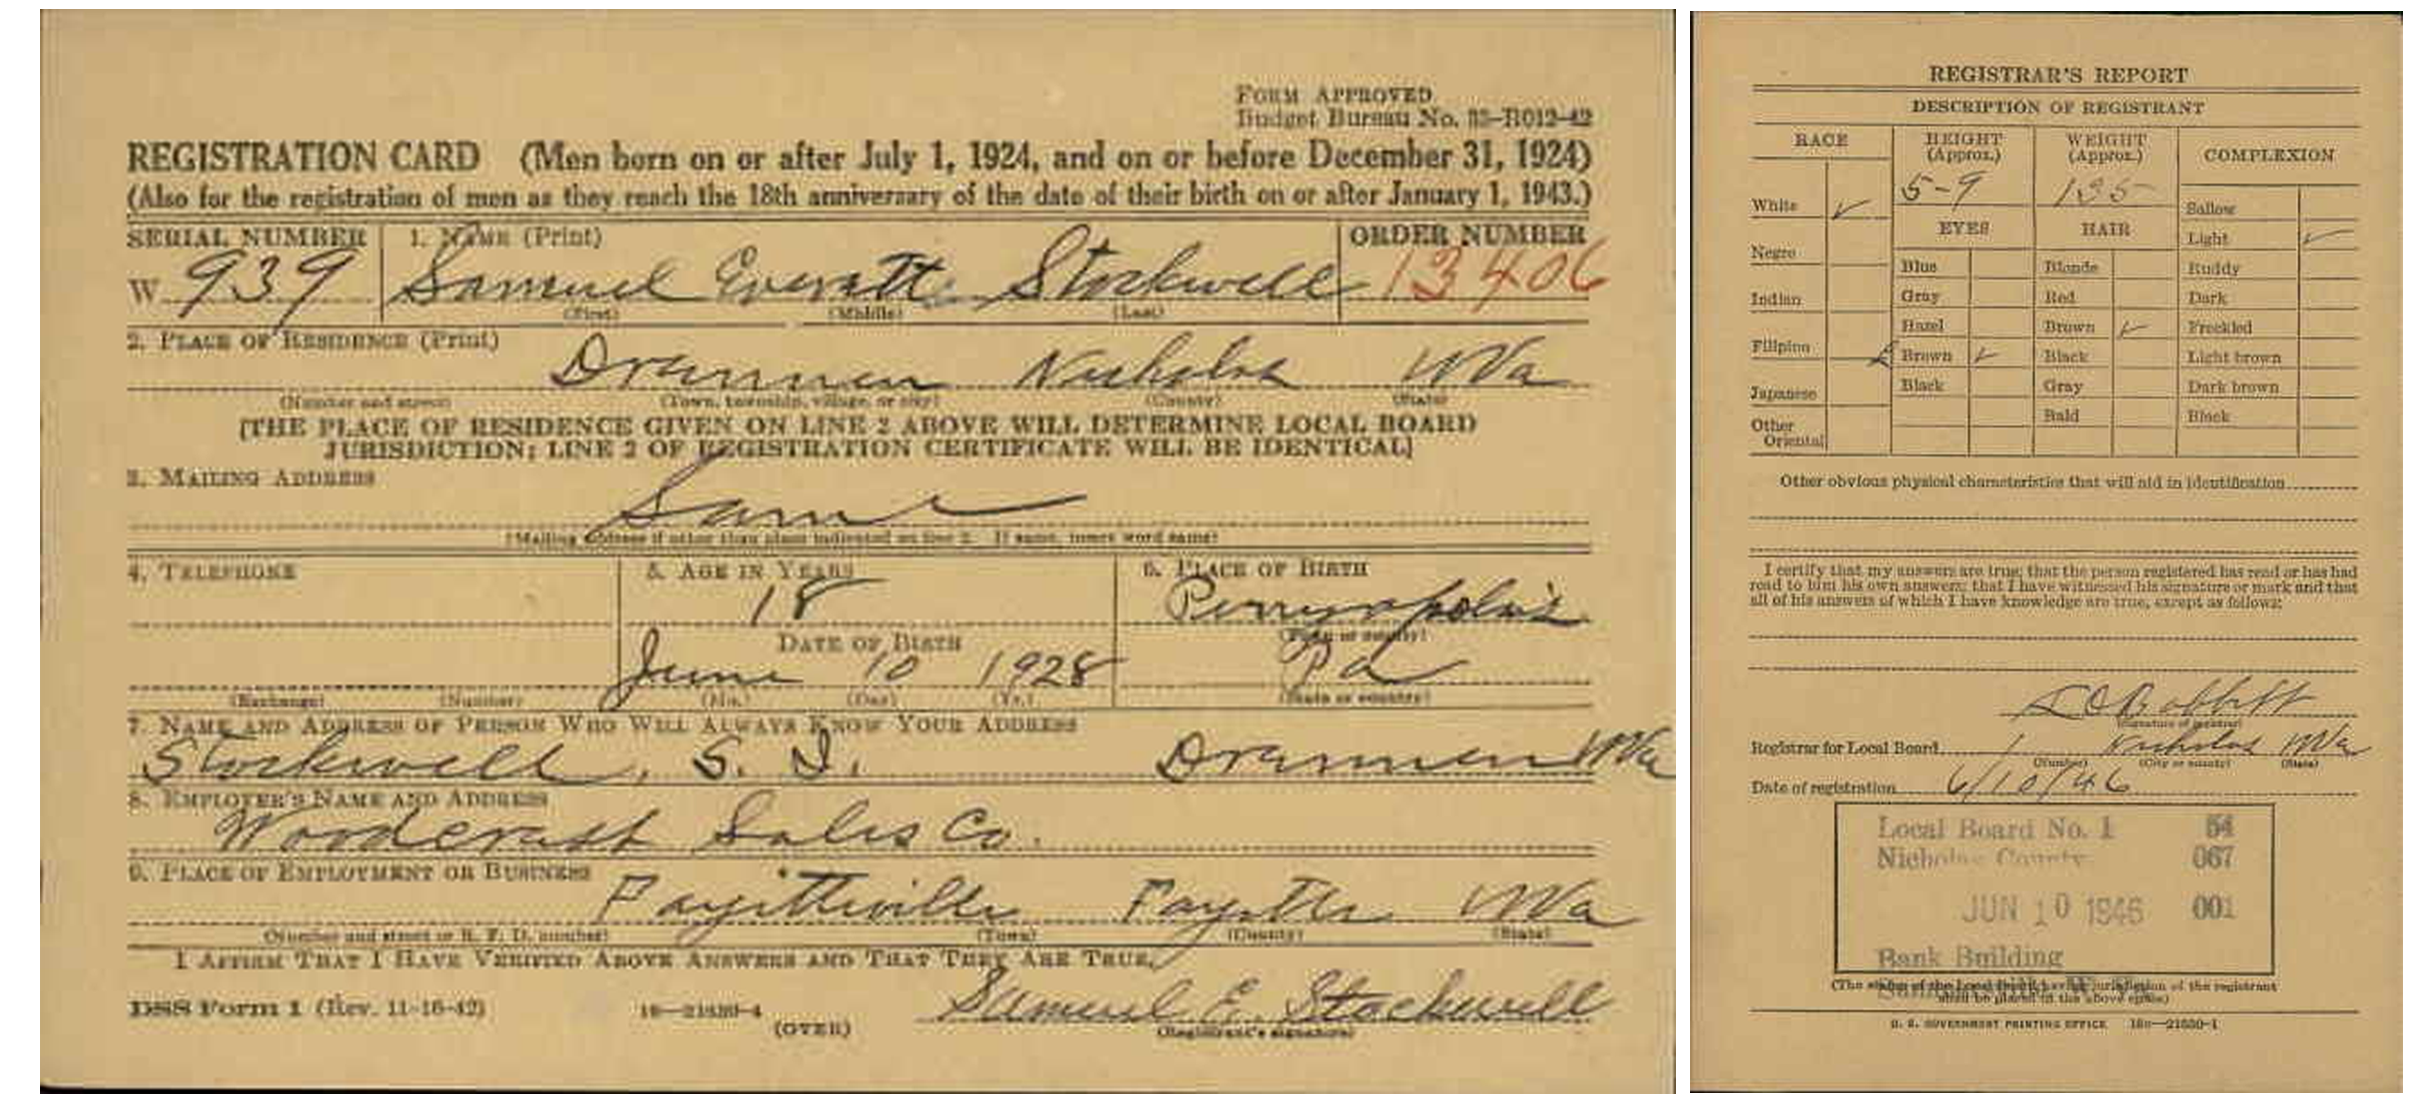 FORM APPROVED
Budget Bureau No. 33-R012-42
REGISTRATION CARD (Men born on or after July 1, 1924, and on or before December 31, 1924)
(Also for the registration of men as they reach the 18th anniversary of the date of their birth on or after January 1, 1943.)
SERIAL NUMBER 1. NAME (Print) ORDER NUMBER
W 939 Samuel Everatt Stockwell 13406
(First) (Middle) (Last)
2. PLACE OF RESIDENCE (Print)
Drennen Nicholas WVa
(Number and street) (Town, township, village, or city) (County) (State)
[THE PLACE OF RESIDENCE GIVEN ON LINE 2 ABOVE WILL DETERMINE LOCAL BOARD
JURISDICTION; LINE 2 OF REGISTRATION CERTIFICATE WILL BE IDENTICAL]
3. MAILING ADDRESS
Same
[Mailing address if other than place indicated on line 2. If same, insert word same]
4. TELEPHONE 5. AGE IN YEARS 6. PLACE OF BIRTH
18 Perryopolis
DATE OF BIRTH (Town or county)
June 10 1928 Pa
(Exchange) (Number) (Mo.) (Day) (Yr.) (State or country)
7. NAME AND ADDRESS OF PERSON WHO WILL ALWAYS KNOW YOUR ADDRESS
Stockwell, S. I. Drennen WVa
8. EMPLOYER'S NAME AND ADDRESS
Woodcraft Sales Co.
9. PLACE OF EMPLOYMENT OR BUSINESS
Fayetteville Fayette WVa
(Number and street or R. F. D. number) (Town) (County) (State)
I AFFIRM THAT I HAVE VERIFIED ABOVE ANSWERS AND THAT THEY ARE TRUE.
DSS Form 1 (Rev. 11-16-42) 16—21630-4 Samuel E. Stockwell
(OVER) (Registrant's signature)
REGISTRAR'S REPORT
DESCRIPTION OF REGISTRANT
RACE HEIGHT (Approx.) WEIGHT (Approx.) COMPLEXION
5-9 135
White ✓ Sallow
EYES HAIR Light ✓
Negro Blue Blonde Ruddy
Indian Gray Red Dark
Hazel Brown ✓ Freckled
Filipino Brown ✓ Black Light brown
Japanese Black Gray Dark brown
Other Oriental Bald Black
Other obvious physical characteristics that will aid in identification
I certify that my answers are true; that the person registered has read or has had
read to him his own answers; that I have witnessed his signature or mark and that
all of his answers of which I have knowledge are true, except as follows:
Babbitt
(Signature of registrar)
Registrar for Local Board 1 Nicholas WVa
(Number) (City or county) (State)
Date of registration 6/10/46
Local Board No. 1 54
Nicholas County 067
JUN 10 1946 001
Bank Building
(The stamp of the Local Board having jurisdiction of the registrant
shall be placed in the above space)
U. S. GOVERNMENT PRINTING OFFICE 16—21630-1